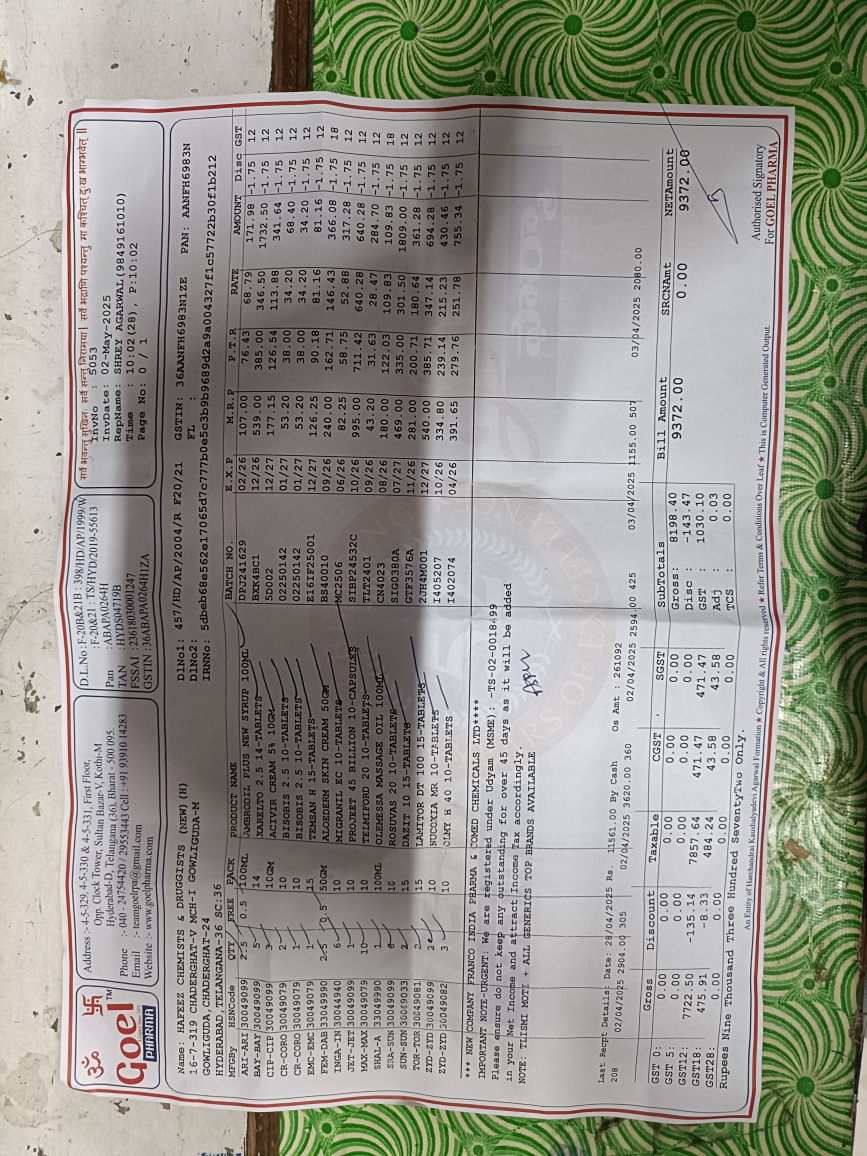 सर्वे भवन्तु सुखिनः सर्वे सन्तु निरामया। सर्वे भद्राणि पश्यन्तु मा कश्चित् दुःख भाग्भवेत् ॥
Goel™
PHARMA
Address :- 4-5-329, 4-5-330 & 4-5-331, First Floor,
Opp. Clock Tower, Sultan Bazar-V, Kothi-M
Hyderabad-D, Telangana (36), Bharat - 500 095.
Phone :- 040 - 24754420 / 29553443 Cell : +91 93910 14283
Email :- teamgoelrpa@gmail.com
Website :- www.goelpharma.com
D.L.No : F-20B&21B : 398/HD/AP/1999/W
: F-20&21 : TS/HYD/2019-55613
Pan : ABAPA0264H
TAN : HYDS04719B
FSSAI : 23618030001247
GSTIN : 36ABAPA0264H1ZA
InvNo : 5053
InvDate: 02-May-2025
RepName: SHREY AGARWAL(9849161010)
Time : 10:02(28), P:10:02
Page No: 0 / 1
Name: HAFEEZ CHEMISTS & DRUGGISTS (NEW) (H)
16-7-319 CHADERGHAT-V MCH-I GOWLIGUDA-M
GOWLIGUDA, CHADERGHAT-24
HYDERABAD, TELANGANA-36 SC:36
DlNo1: 457/HD/AP/2004/R F20/21 GSTIN: 36AANFH6983N1ZE PAN: AANFH6983N
DlNo2: FL :
IRNNo: 5dbeb68e562e17065d7c777b0e5c3b9b9689d2a9a004327f1c57722b30f1b212
MFGBy HSNCode QTY FREE PACK PRODUCT NAME BATCH NO. E.X.P M.R.P P.T.R RATE AMOUNT Disc GST
ARI-ARI 30049099 2.5 0.5 100ML AMBRODIL PLUS NEW SYRUP 100ML DPJ241629 02/26 107.00 76.43 68.79 171.98 -1.75 12
BAY-BAY 30049099 5 14 XARELTO 2.5 14-TABLETS BXK4BC1 12/26 539.00 385.00 346.50 1732.50 -1.75 12
CIP-CIP 30049099 3 10GM ACIVIR CREAM 5% 10GM 5D002 12/27 177.15 126.54 113.88 341.64 -1.75 12
CR-CORO 30049079 2 10 BISOBIS 2.5 10-TABLETS 02250142 01/27 53.20 38.00 34.20 68.40 -1.75 12
CR-CORO 30049079 1 10 BISOBIS 2.5 10-TABLETS 02250142 01/27 53.20 38.00 34.20 34.20 -1.75 12
EMC-EMC 30049079 1 15 TEMSAN H 15-TABLETS E16IF25001 12/27 126.25 90.18 81.16 81.16 -1.75 12
FEM-DAB 33049990 2.5 0.5 50GM ALOEDERM SKIN CREAM 50GM BS40010 09/26 240.00 162.71 146.43 366.08 -1.75 18
INGA-IN 30044940 6 10 MIGRANIL EC 10-TABLETS MC2506 06/26 82.25 58.75 52.88 317.28 -1.75 12
JET-JET 30049099 1 10 PROJEET 45 BILLION 10-CAPSULES SIBP24532C 10/26 995.00 711.42 640.28 640.28 -1.75 12
MAX-MAX 30049079 10 10 TELMIFORD 20 10-TABLETS TLT2401 09/26 43.20 31.63 28.47 284.70 -1.75 12
SHAL-A 33049990 1 100ML ELEMESSA MASSAGE OIL 100ML CN4023 08/26 180.00 122.03 109.83 109.83 -1.75 18
SBA-SUN 30049099 6 10 ROSUVAS 20 10-TABLETS SIG0380A 07/27 469.00 335.00 301.50 1809.00 -1.75 12
SUN-SUN 30049033 2 15 DAZIT 10 15-TABLETS GTF3576A 11/26 281.00 200.71 180.64 361.28 -1.75 12
TOR-TOR 30049081 2 15 LAMITOR DT 100 15-TABLETS 2JH4M001 12/27 540.00 385.71 347.14 694.28 -1.75 12
ZYD-ZYD 30049099 2 10 NUCOXIA MR 10-TABLETS I405207 10/26 334.80 239.14 215.23 430.46 -1.75 12
ZYD-ZYD 30049082 3 10 OLMY H 40 10-TABLETS I402074 04/26 391.65 279.76 251.78 755.34 -1.75 12
*** NEW COMPANY FRANCO INDIA PHARMA & COMED CHEMICALS LTD****
IMPORTANT NOTE-URGENT: We are registered under Udyam (MSME): -TS-02-0018499
Please ensure do not keep any outstanding for over 45 days as it will be added
in your Net Income and attract Income Tax accordingly
NOTE: TLTSMI MOTI + ALL GENERICS TOP BRANDS AVAILABLE
Last Recpt Details: Date: 28/04/2025 Rs. 11561.00 By Cash Os Amt : 261092
208 02/04/2025 2904.00 305 02/04/2025 3620.00 360 02/04/2025 2594.00 425 03/04/2025 1155.00 507 03/04/2025 2080.00
Gross Discount Taxable CGST SGST SubTotals Bill Amount SRCNAmt NETAmount
GST 0: 0.00 0.00 0.00 0.00 0.00 Gross: 8198.40 9372.00 0.00 9372.00
GST 5: 0.00 0.00 0.00 0.00 0.00 Disc : -143.47
GST12: 7722.50 -135.14 7857.64 471.47 471.47 GST : 1030.10
GST18: 475.91 -8.33 484.24 43.58 43.58 Adj : 0.03
GST28: 0.00 0.00 0.00 0.00 0.00 TCS : 0.00
Rupees Nine Thousand Three Hundred SeventyTwo Only.
Authorised Signatory
For GOEL PHARMA
An Entity of Harchandrai Kaushalyadevi Agarwal Formation ★ Copyright & All rights reserved ★ Refer Terms & Conditions Over Leaf ★ This is Computer Generated Output.